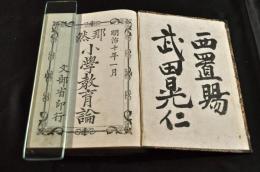 明治十年一月
那然小學教育論
文部省印行
西置賜
武田晃仁